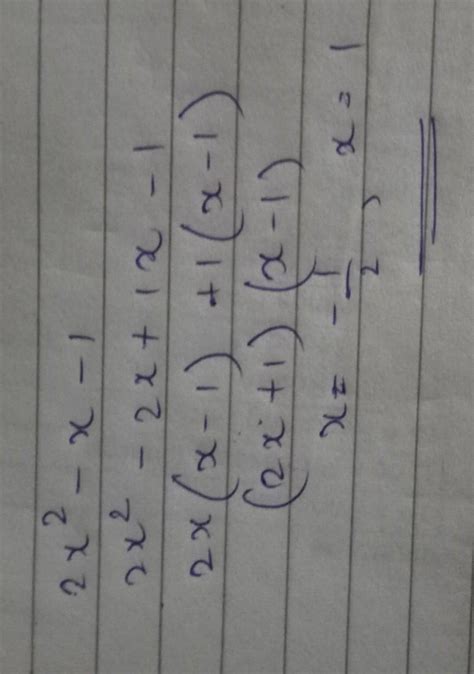 2x² - x - 1
2x² - 2x + 1x - 1
2x(x - 1) + 1(x - 1)
(2x + 1) (x - 1)
x = -1/2, x = 1